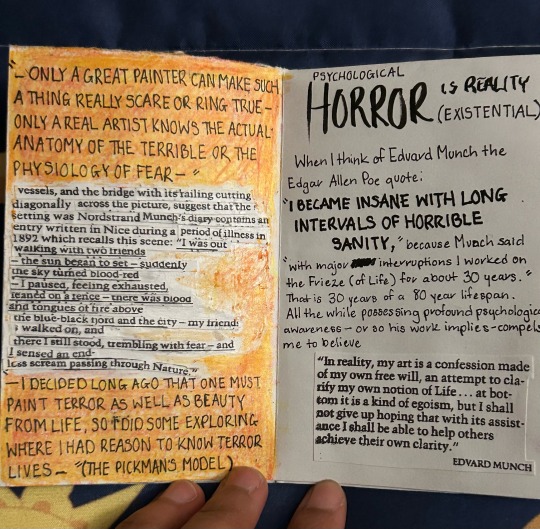 "— ONLY A GREAT PAINTER CAN MAKE SUCH
A THING REALLY SCARE OR RING TRUE —
ONLY A REAL ARTIST KNOWS THE ACTUAL
ANATOMY OF THE TERRIBLE OR THE
PHYSIOLOGY OF FEAR — "
vessels, and the bridge with its railing cutting
diagonally across the picture, suggest that the
setting was Nordstrand Munch's diary contains an
entry written in Nice during a period of illness in
1892 which recalls this scene: "I was out
walking with two friends
— the sun began to set — suddenly
the sky turned blood-red
— I paused, feeling exhausted,
leaned on a fence — there was blood
and tongues of fire above
the blue-black fjord and the city — my friends
walked on, and
there I still stood, trembling with fear — and
I sensed an end-
less scream passing through Nature."
— I DECIDED LONG AGO THAT ONE MUST
PAINT TERROR AS WELL AS BEAUTY
FROM LIFE, SO I DID SOME EXPLORING
WHERE I HAD REASON TO KNOW TERROR
LIVES — "(THE PICKMAN'S MODEL)
PSYCHOLOGICAL
HORROR IS REALITY
(EXISTENTIAL)
When I think of Edvard Munch the
Edgar Allen Poe quote:
"I BECAME INSANE WITH LONG
INTERVALS OF HORRIBLE
SANITY," because Munch said
"with major interruptions I worked on
the Frieze (of Life) for about 30 years."
That is 30 years of a 80 year lifespan.
All the while possessing profound psychologica
awareness – or so his work implies – compels
me to believe
"In reality, my art is a confession made
of my own free will, an attempt to cla-
rify my own notion of Life . . . at bot-
tom it is a kind of egoism, but I shall
not give up hoping that with its assist-
ance I shall be able to help others
achieve their own clarity."
EDVARD MUNCH